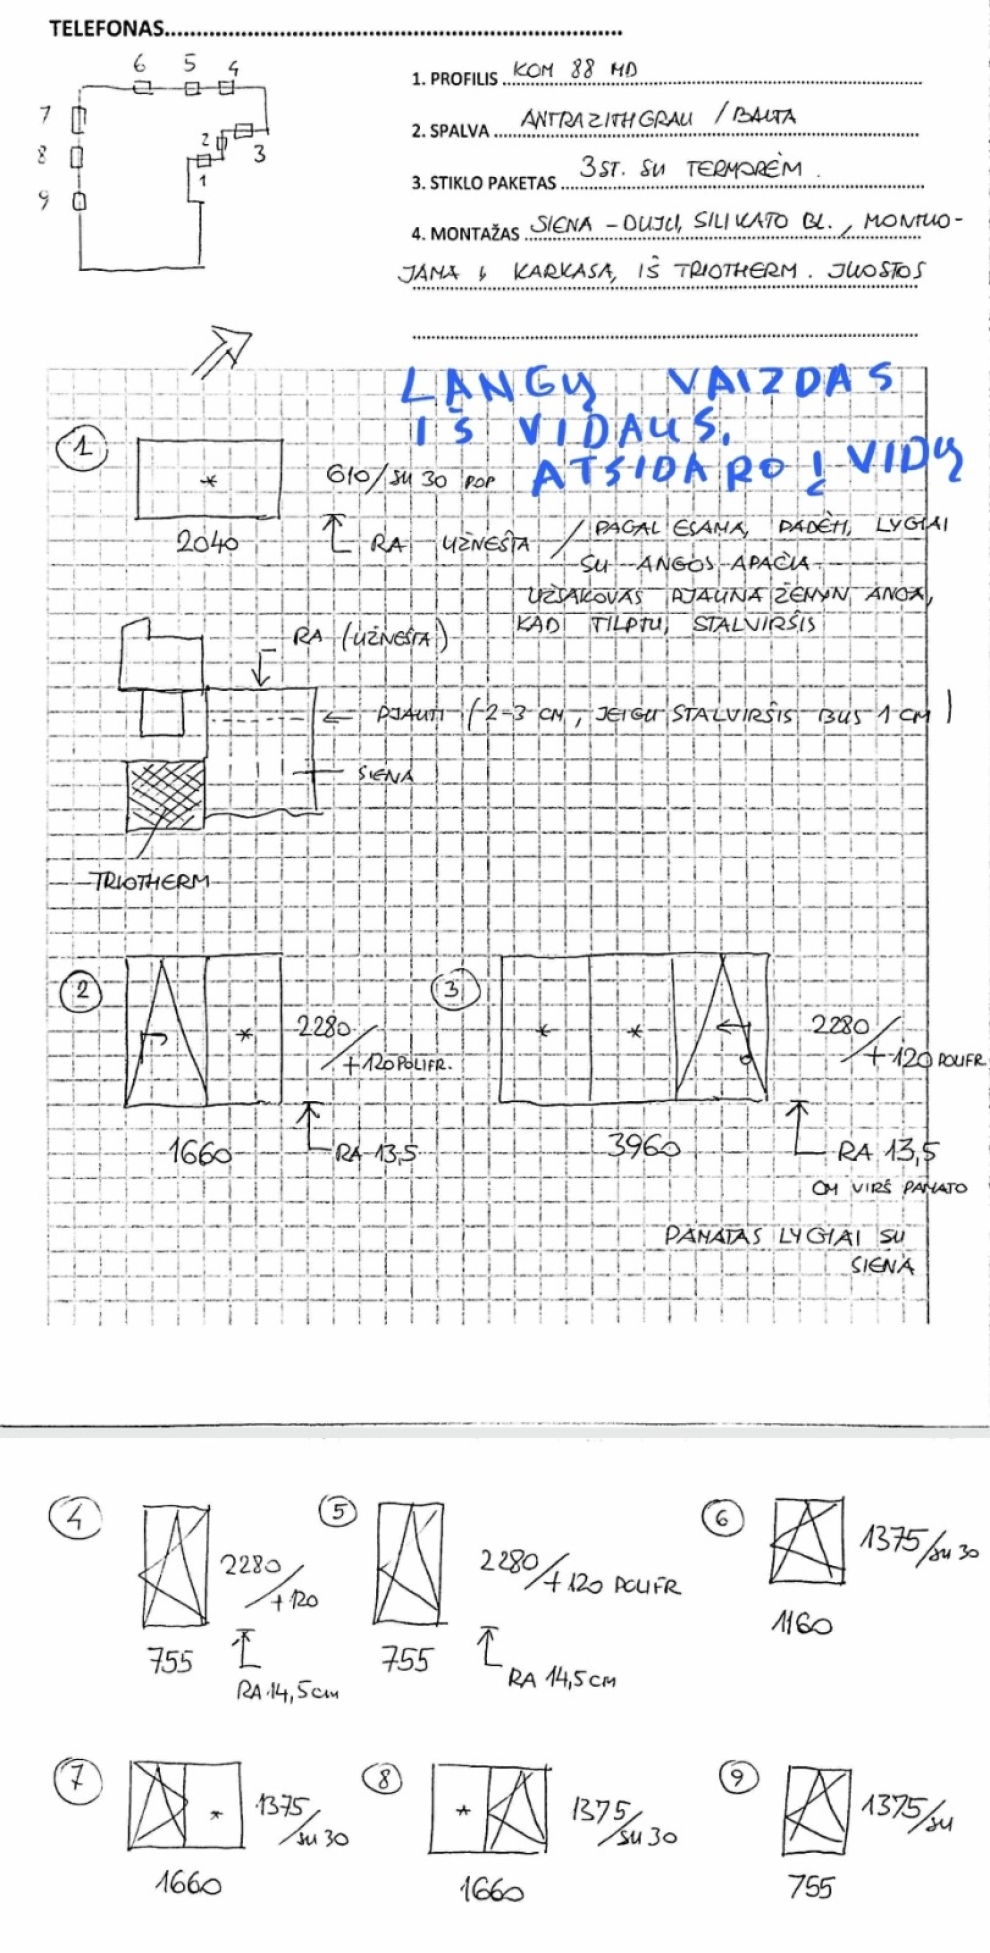 TELEFONAS
6 5 4
7
8
9
2
3
1
1. PROFILIS KOM 88 MD
2. SPALVA ANTRAZITHGRAU / BALTA
3. STIKLO PAKETAS 3ST. SU TERMORĖM.
4. MONTAŽAS SIENA - DUJŲ SILIKATO BL., MONTUO-
JAMA Į KARKASĄ IŠ TRIOTHERM. JUOSTOS
LANGŲ VAIZDAS
IŠ VIDAUS.
ATSIDARO Į VIDŲ
1
*
610/SU 30 POP
2040
RA UŽNEŠTA / PAGAL ESAMĄ PADĖTĮ, LYGIAI
SU ANGOS APAČIA
UŽSAKOVAS PJAUNA ŽEMYN ANGĄ,
KAD TILPTŲ STALVIRŠIS
RA (UŽNEŠTA)
PJAUTI (2-3 CM, JEIGU STALVIRŠIS BUS 1 CM)
SIENA
TRIOTHERM
2
*
2280/+120 POLIFR.
1660
RA 13,5
3
* *
2280/+120 POLIFR
3960
RA 13,5
CM VIRŠ PAMATO
PAMATAS LYGIAI SU
SIENA
4
2280/+120
755
RA 14,5cm
5
2280/+120 POLIFR
755
RA 14,5CM
6
1375/su 30
1160
7
*
1375/su 30
1660
8
*
1375/su 30
1660
9
1375/su
755